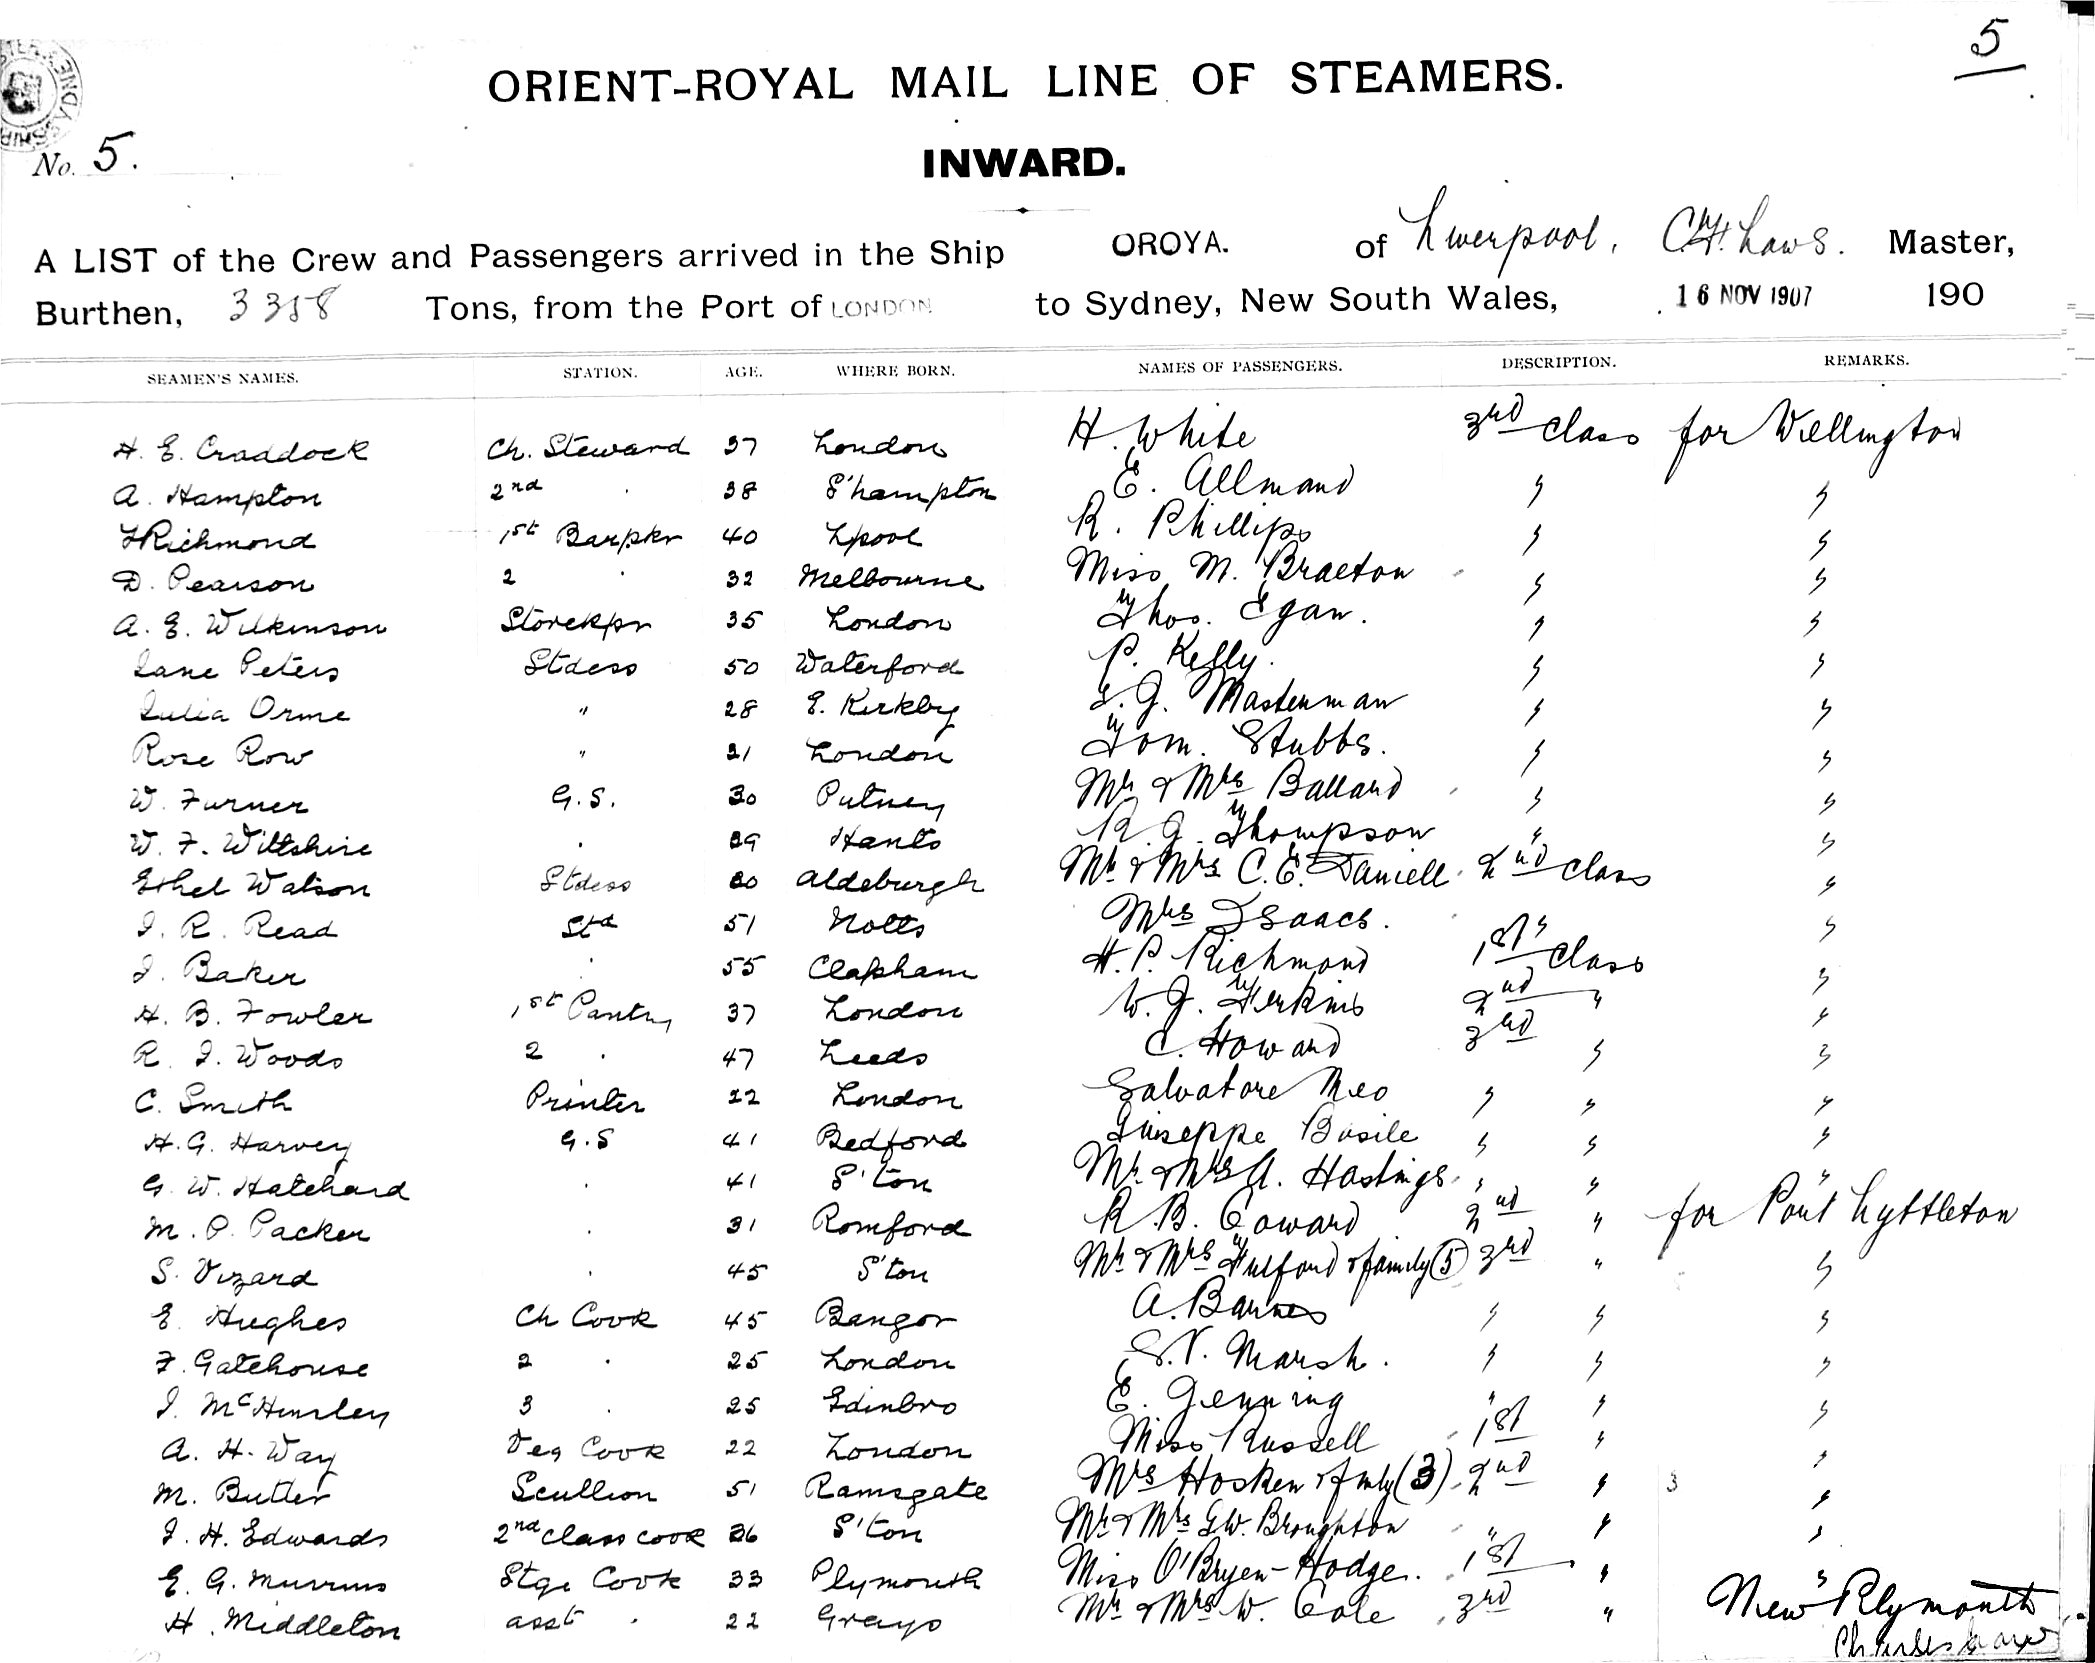 5
ORIENT-ROYAL MAIL LINE OF STEAMERS.
No. 5.
INWARD.
A LIST of the Crew and Passengers arrived in the Ship OROYA. of Liverpool, C.H. Laws. Master,
Burthen, 3358 Tons, from the Port of LONDON to Sydney, New South Wales, 16 NOV 1907 190
SEAMEN'S NAMES. STATION. AGE. WHERE BORN. NAMES OF PASSENGERS. DESCRIPTION. REMARKS.
H. E. Craddock Ch. Steward 37 London H. White 3rd class for Wellington
A. Hampton 2nd 38 S'hampton E. Allmand " "
Richmond 1st Barpkr 40 Lpool R. Phillips " "
D. Pearson 2 32 Melbourne Miss M. " "
A. E. Wilkinson Storekpr 35 London Thos. Egan. " "
Jane Peters Stdess 50 Waterford P. Kelly. " "
Julia Orme " 28 E. Kirkby J. Masterman " "
Rose Row " 21 London Tom. Stubbs. " "
W. Turner G.S. 30 Putney Mr & Mrs Ballard " "
W. F. Wiltshire 39 Hants R. J. Thompson " "
Ethel Watson Stdess 30 Aldeburgh Mr & Mrs C. E. Daniell 2nd class "
J. R. Read Std 51 Notts Mrs Isaacs. " "
J. Baker 55 Clapham H. P. Richmond 1st class "
H. B. Fowler 1st Pantry 37 London W. J. 2nd " "
R. J. Woods 2 47 Leeds C. Howard 3rd " "
C. Smith Printer 22 London Salvatore Meo " " "
H. G. Harvey G.S 41 Bedford Giuseppe Basile " " "
G. W. Hatchard 41 S'ton Mr & Mrs A. Hastings " " "
M. P. Packer 31 Romford R. B. Coward 2nd " for Port Lyttleton
S. Vizard 45 S'ton Mr & Mrs Fulford & family (5) 3rd " "
E. Hughes Ch Cook 45 Bangor A. Barnes " " "
F. Gatehouse 2 25 London S. V. Marsh. " " "
J. 3 25 Edinbro E. Jenning " " "
A. H. Way Veg Cook 22 London Miss Russell 1st " "
M. Butler Scullion 51 Ramsgate Mrs Hosken & fmly (3) 2nd " 3 "
J. H. Edwards 2nd class cook 36 S'ton Mr & Mrs G.W. Broughton " " "
E. G. Stge Cook 33 Plymouth Miss O'Bryen-Hodge. 1st " "
H. Middleton asst 22 Grays Mr & Mrs W. Cole 3rd " New Plymouth
Charles